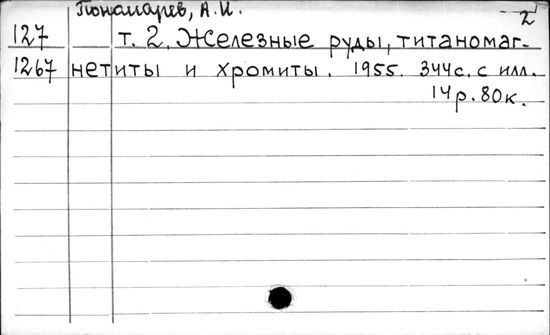 Пономарев, А.И.
2
127 т. 2. Железные руды, титаномаг-
1267 нетиты и хромиты. 1955. 344с. с илл.
14р. 80к.